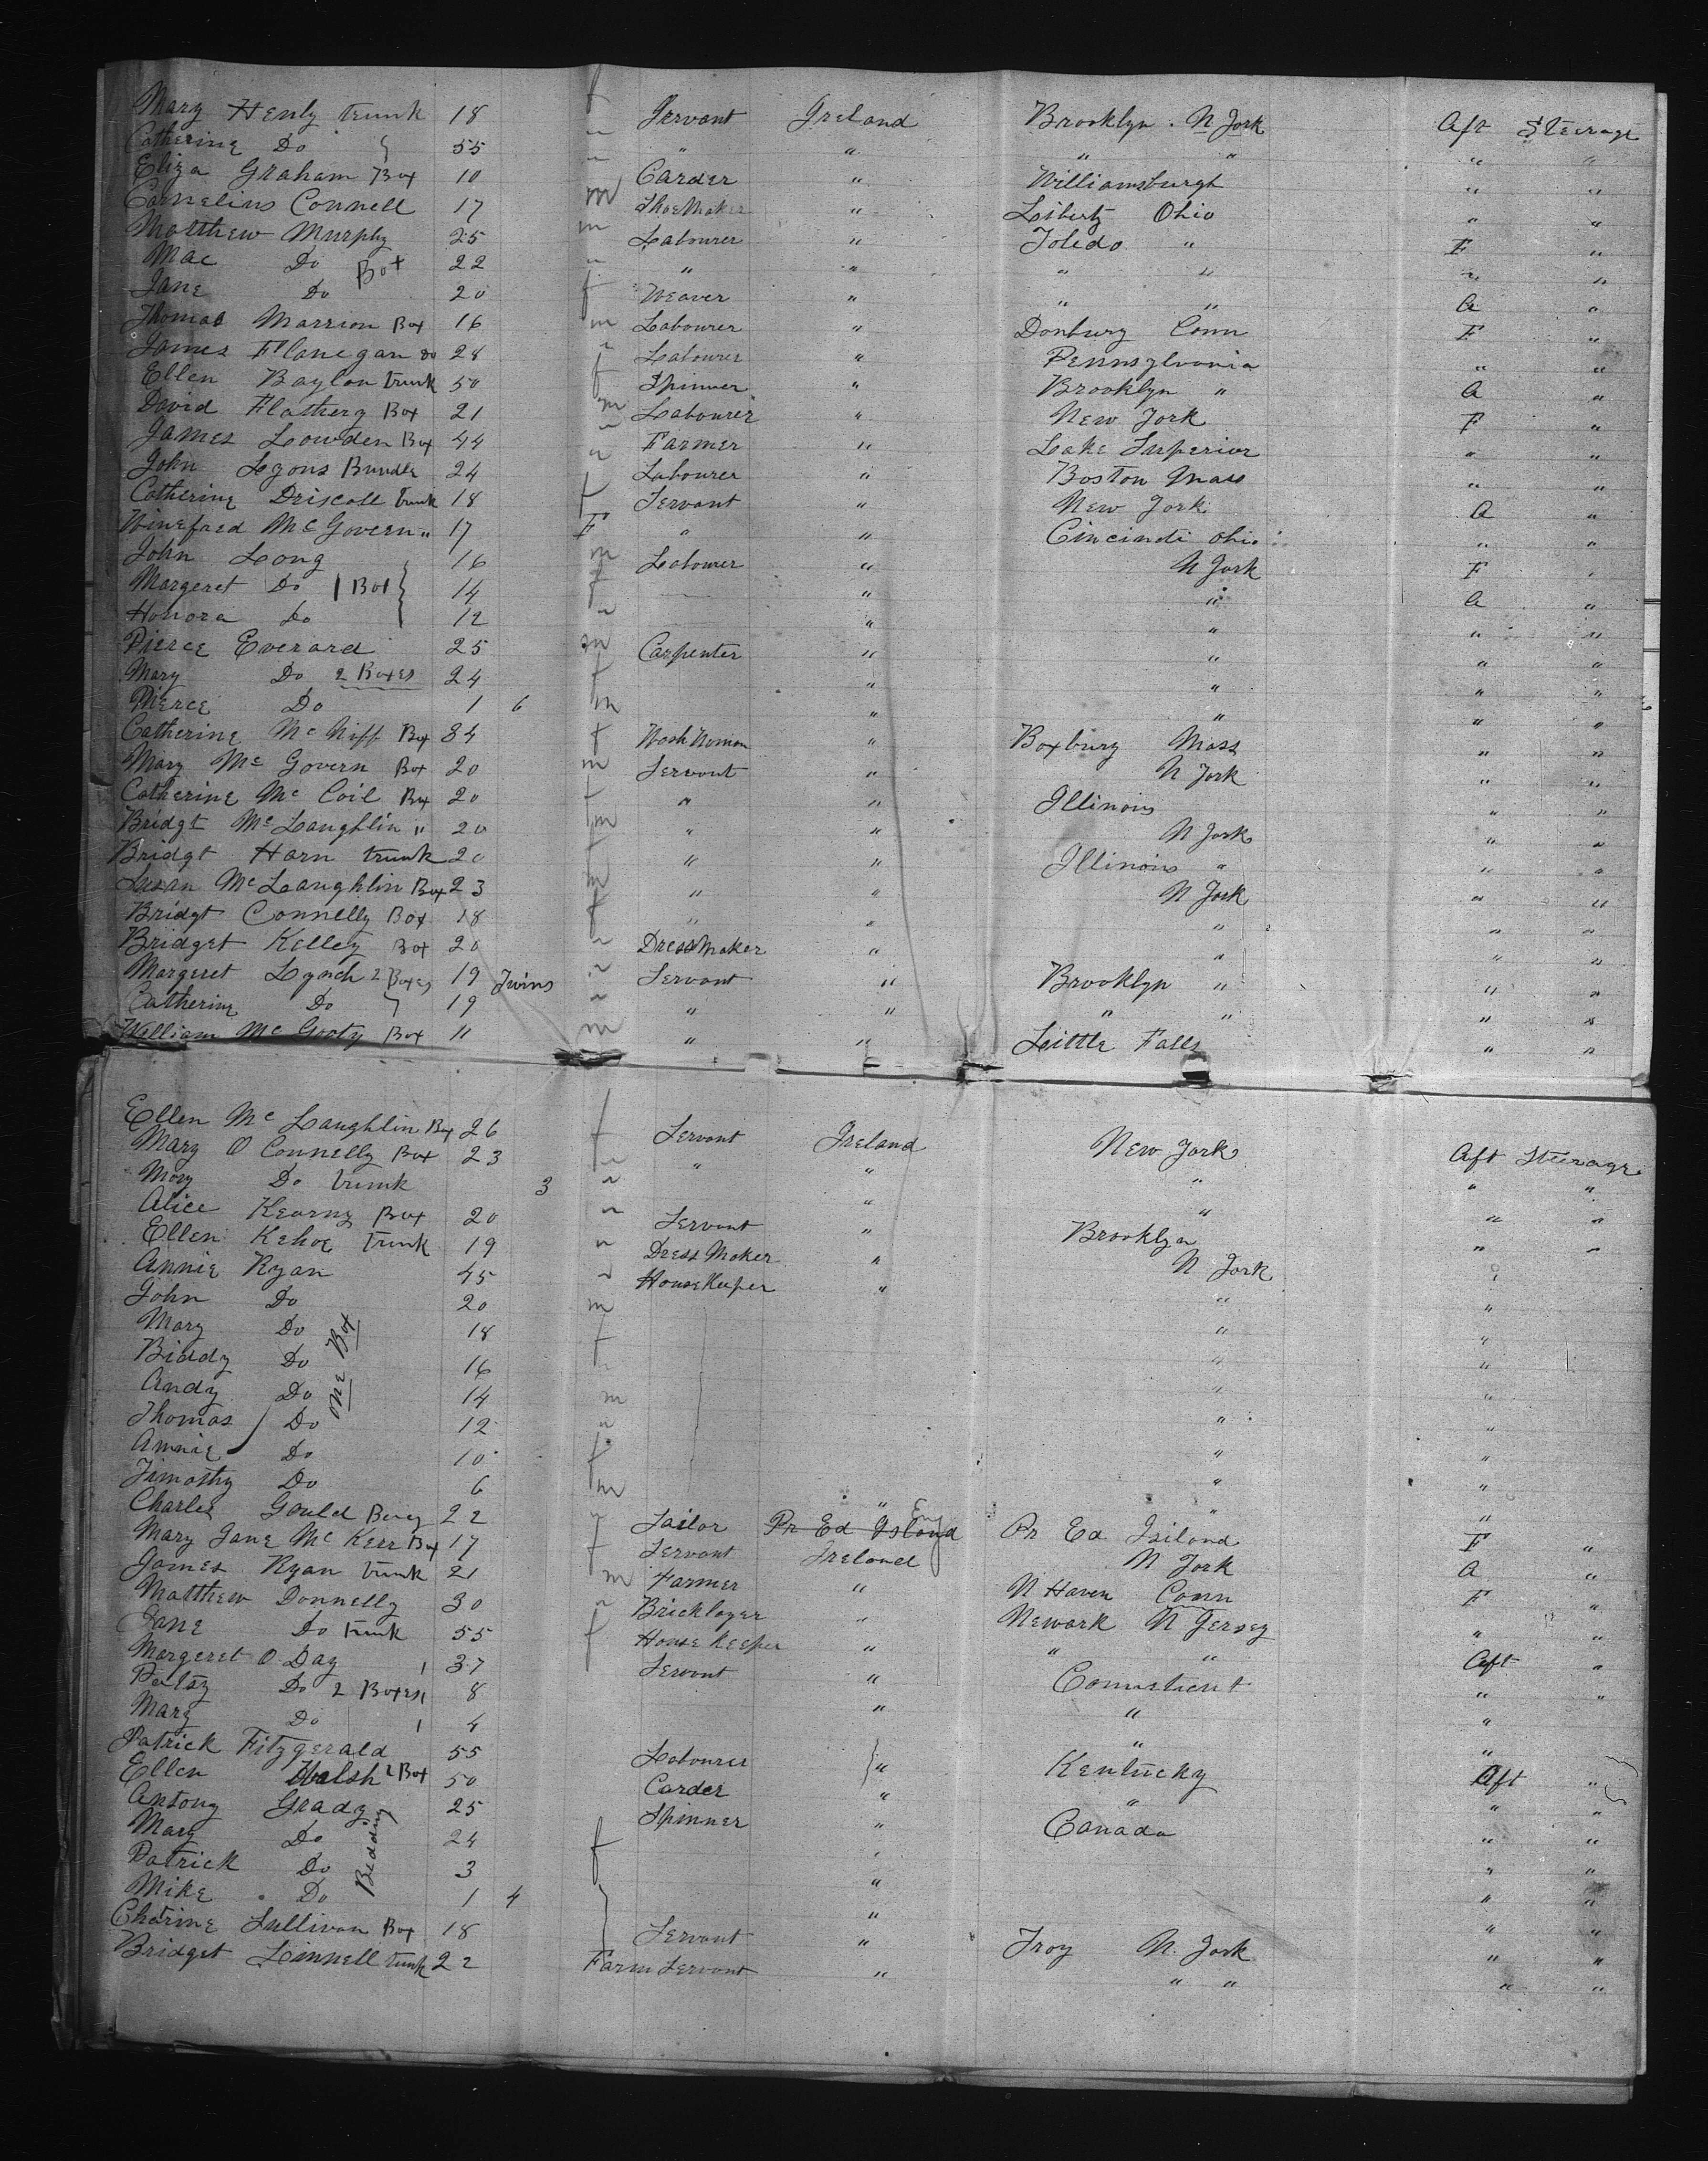 Mary Henly trunk 18 f Servant Ireland Brooklyn . N York Aft Steerage
Catherine Do 55 " " " " " " "
Eliza Graham Box 10 " Carder " Williamsburgh " "
Cornelius Connell 17 m ShoeMaker " Liberty Ohio " "
Matthew Murphy 25 m Labourer " Toledo " F "
Mac Do Box 22 " " " " " " "
Jane Do 20 f Weaver " " " A "
Thomas Marrion Box 16 m Labourer " Donbury Conn F "
James Flanegan Do 28 " Labourer " Pennsylvania " "
Ellen Baylon trunk 50 f Spinner " Brooklyn " A "
David Flatherg Box 21 m Labourer " New York F "
James Lowden Box 44 " Farmer " Lake Superior " "
John Lyons Bundle 24 " Labourer " Boston Mass " "
Catherine Driscoll trunk 18 f Servant " New York A "
Winefred McGovern " 17 F " " Cincinati Ohio " "
John Long 16 m Labourer " N York F "
Margeret Do 1 Box 14 f " " A "
Honora Do 12 " " " " "
Pierce Everard 25 m Carpenter " " " "
Mary Do 2 Boxes 24 f " " " "
Pierce Do 1 6 m " " " "
Catherine Mc Niff Box 84 f Wash Woman " Boxbury Mass " "
Mary Mc Govern Box 20 m Servant " N York " "
Catherine Mc Coil Box 20 f " " Illinois " "
Bridgt McLaughlin " 20 m " " N York " "
Bridgt Harn trunk 20 f " " Illinois " " "
Susan McLaughlin Box 23 m " " N York " "
Bridgt Connelly Box 18 f " " " " "
Bridget Kelley Box 20 " DressMaker " " " "
Margeret Lynch 2 Boxes 19 Twins " Servant " Brooklyn " " "
Catherine Do 19 " " " " " " "
William Mc Box 11 m " " Little Falls " "
Ellen Mc Laughlin Box 26 f Servant Ireland New York Aft Steerage
Mary O Connelly Box 23 " " " " " "
Mary Do trunk 3 " " " " "
Alice Kearny Box 20 " Servant " Brooklyn " "
Ellen Kehoe trunk 19 " Dress Maker " N York "
Annie Ryan 45 " HouseKeeper " " "
John Do 20 m " "
Mary Do 18 f " "
Biddy Do One Box 16 " "
Andy Do 14 m " "
Thomas Do 12 " " "
Annie Do 10 f " "
Timothy Do 6 m " " "
Charles Gould 22 " Tailor Pr Ed Island Eng Pr Ed Isiland F "
Mary Jane Mc Kerr Box 17 f Servant Ireland N York A "
James Ryan trunk 21 m Farmer " N Haven Conn F "
Matthew Donnelly 30 " Bricklayer " Newark N Jersey " "
Jane Do trunk 55 f House Keeper " " " Aft "
Margeret O Day 37 Servant " " "
Do 2 Boxes 8 " " "
Mary Do 4 " "
Patrick Fitzgerald 55 Labourer " Kentucky Aft "
Ellen Walsh 2 Box 50 Carder " " " "
Antony Grady 25 Spinner " Canada " "
Mary Do Bedding 24 f " " "
Patrick Do 3 " " "
Mike Do 1 4 " " "
Chatrine Sullivan Box 18 Servant " Troy N. York " "
Bridget Linnell trunk 22 Farm Servant " " " " "